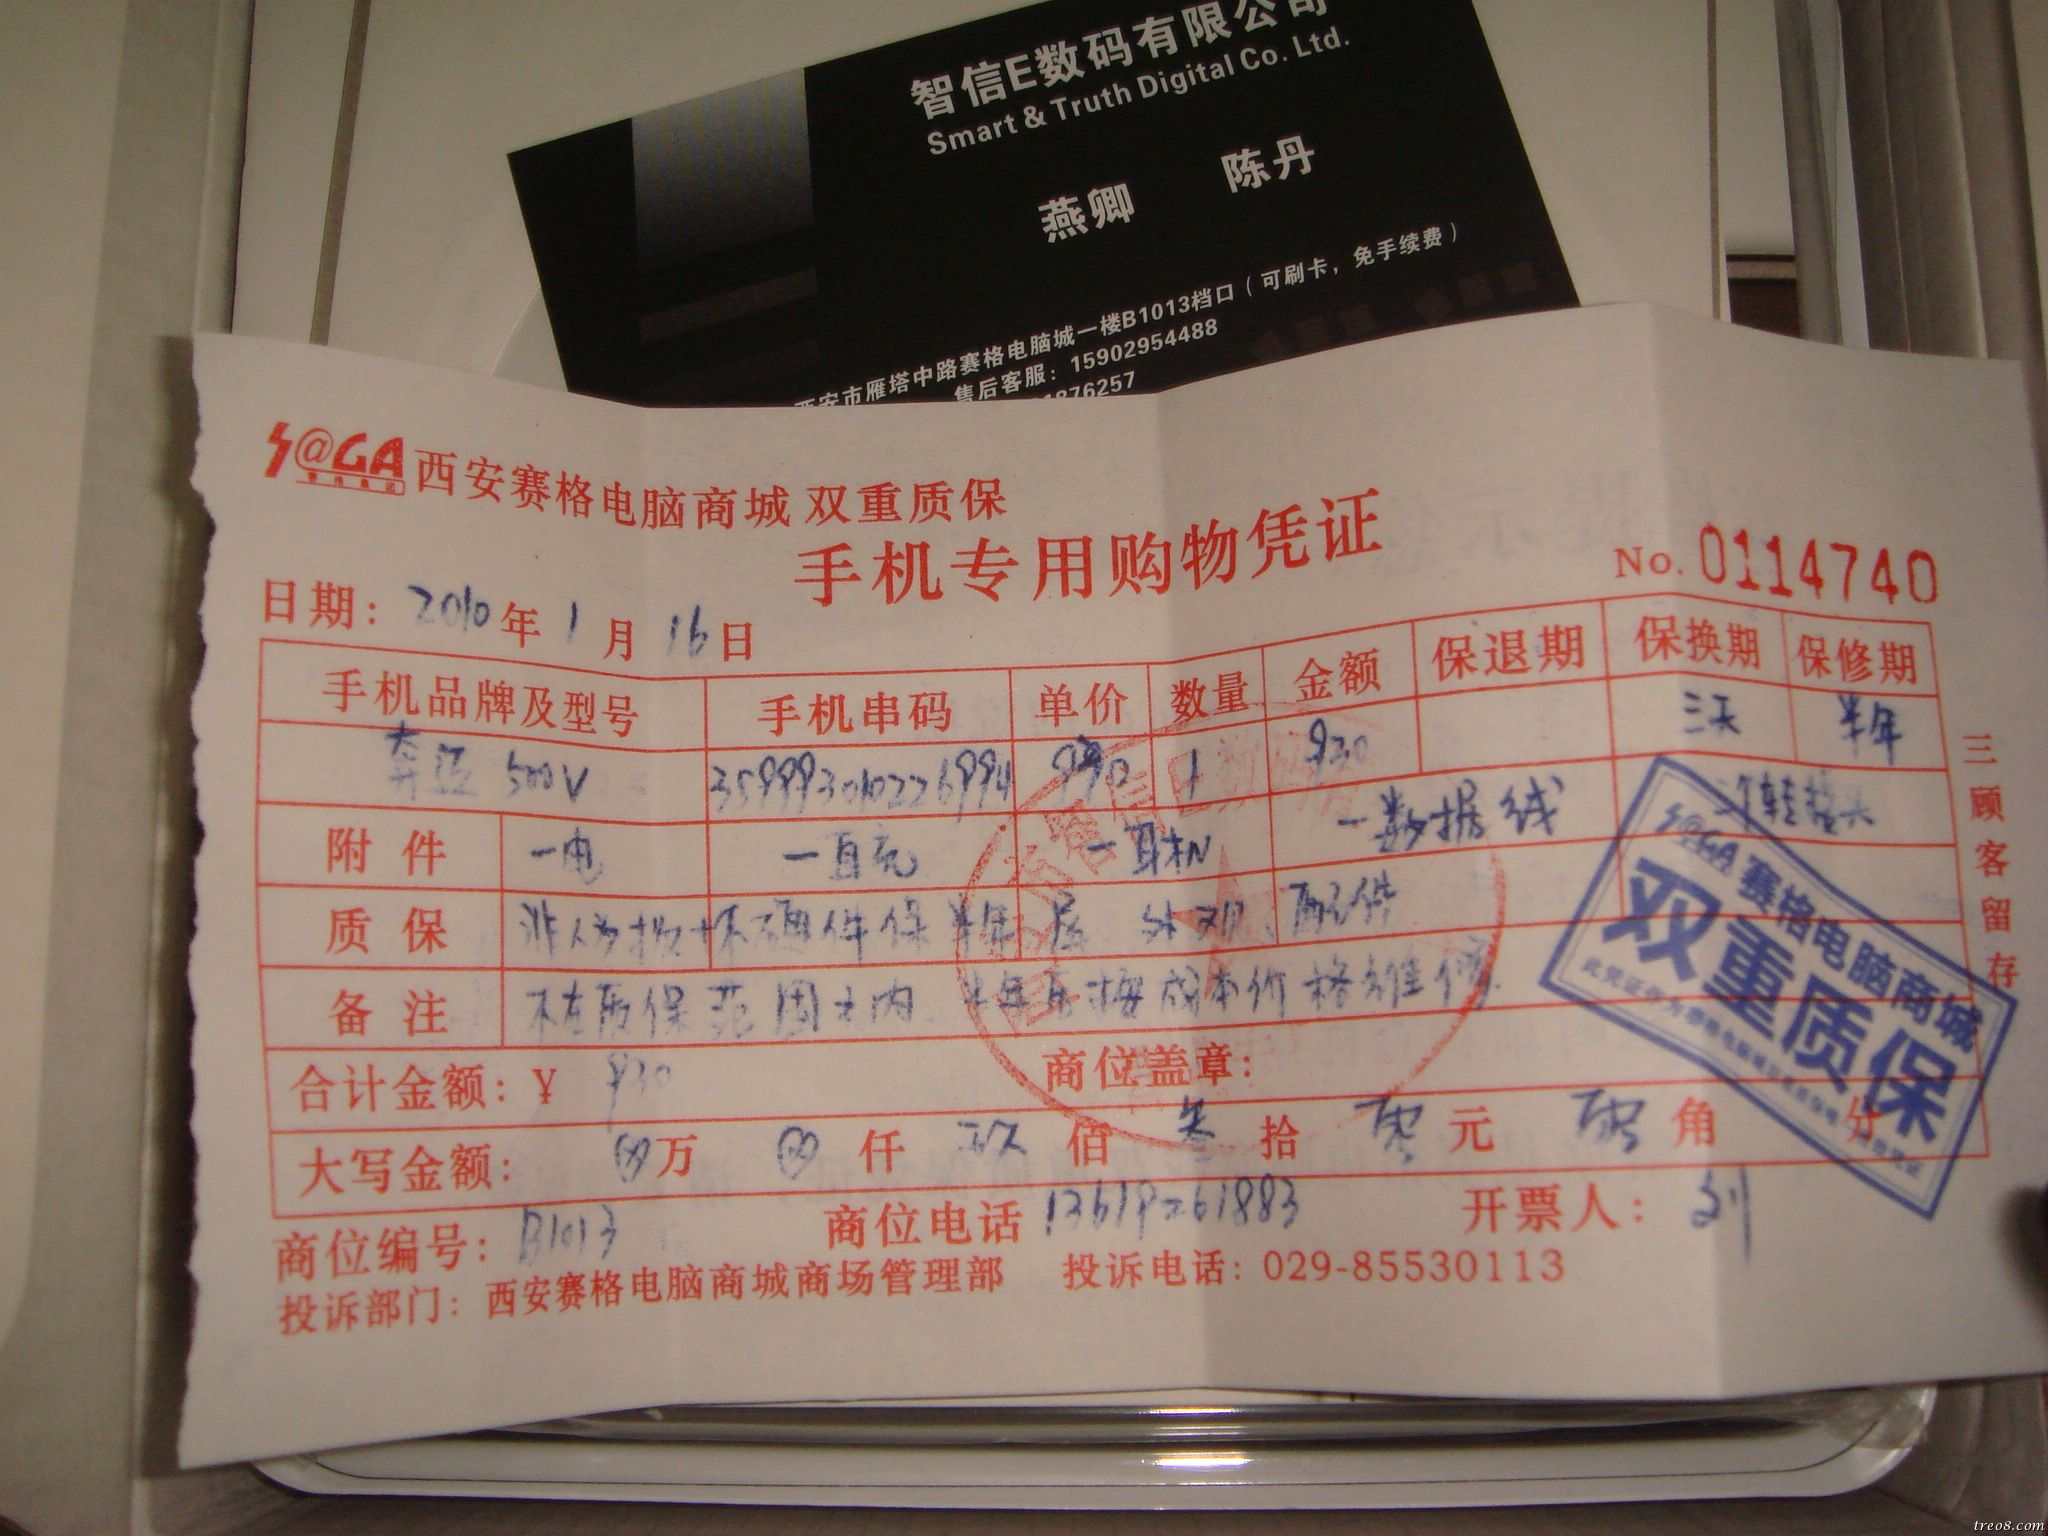 智信E数码有限公司
Smart & Truth Digital Co. Ltd.
燕卿 陈丹
西安市雁塔中路赛格电脑城一楼B1013档口（可刷卡，免手续费）
售后客服：15902954488
1876257
S@GA 西安赛格电脑商城 双重质保
手机专用购物凭证
No. 0114740
日期： 2010 年 1 月 16 日
手机品牌及型号 手机串码 单价 数量 金额 保退期 保换期 保修期
500V 1 930 三天 半年
附件 一电 一直充 一耳机 一数据线 转接头
质保 非人为损坏硬件保半年 外观、配件
备注 不在质保范围之内 半年后按成本价格维修
合计金额：¥ 930 商位盖章：
大写金额： 万 仟 玖 佰 叁 拾 零 元 零 角 分
商位编号： B1013 商位电话 开票人： 刘
投诉部门：西安赛格电脑商城商场管理部 投诉电话：029-85530113
三顾客留存
S@GA 赛格电脑商城
双重质保
treo8.com